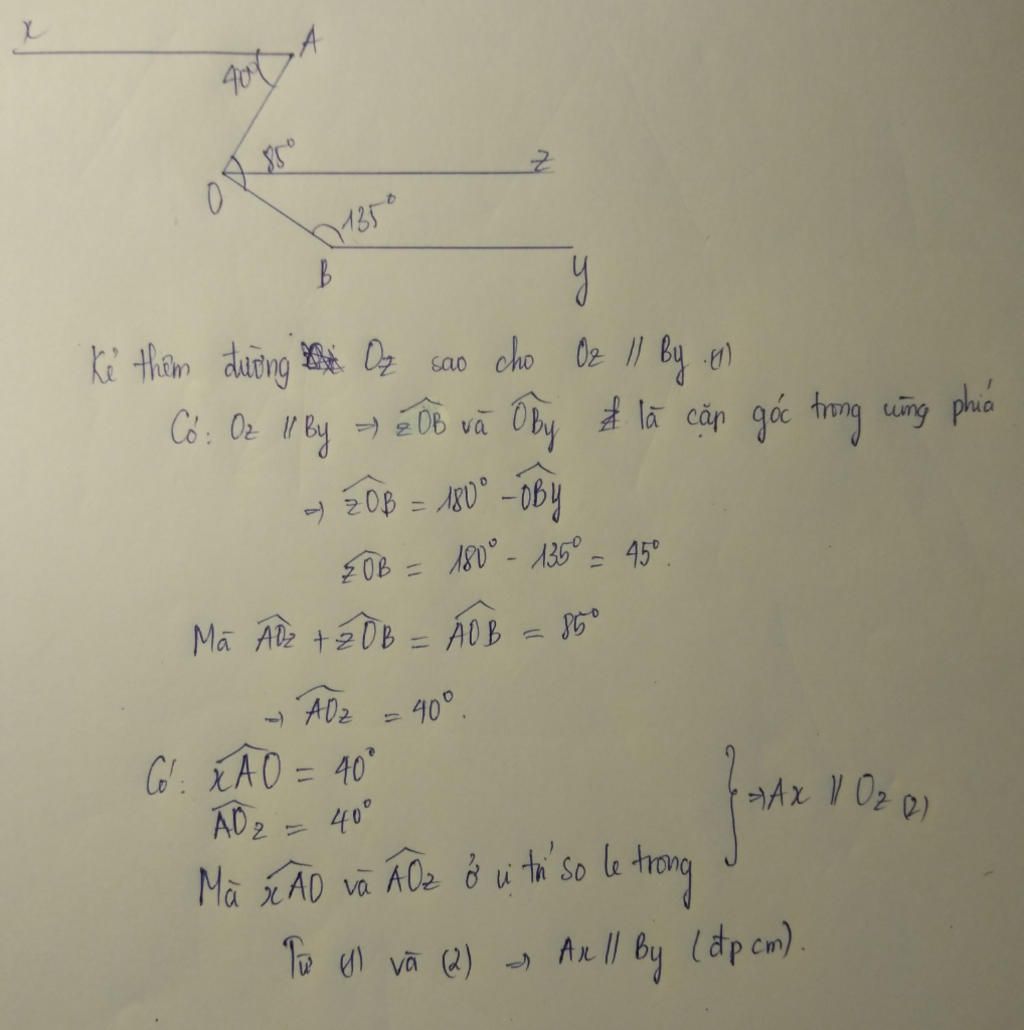 x
A
40°
85°
z
O
135°
B
y
Kẻ thêm đường Oz sao cho Oz // By (1)
Có: Oz // By => zOB và OBy là cặp góc trong cùng phía
=> zOB = 180° - OBy
zOB = 180° - 135° = 45°.
Mà AOz + zOB = AOB = 85°
=> AOz = 40°.
Có: xAO = 40°
AOz = 40°
} => Ax // Oz (2)
Mà xAO và AOz ở vị trí so le trong
Từ (1) và (2) => Ax // By (đpcm).